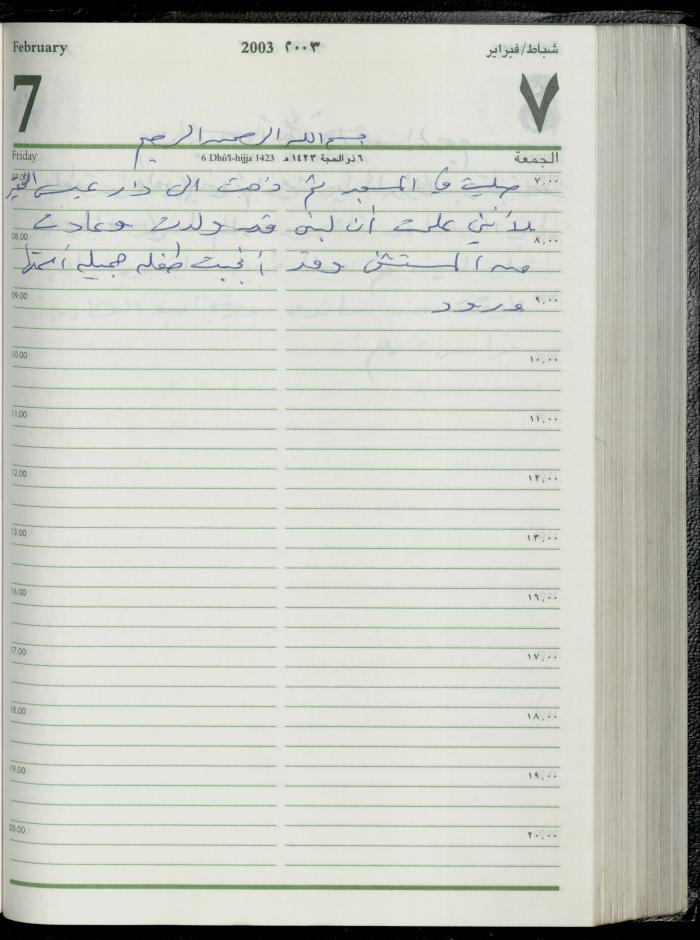 February 2003 ٢٠٠٣ شباط/فبراير
7 ٧
بسم الله الرحمن الرحيم
Friday 6 Dhû'l-hijja 1423 ٦ ذو الحجة ١٤٢٣ هـ الجمعة
٧,٠٠
صليت في المسجد ثم ذهبت الى دار عيسى
لأنني علمت أن لبنى قد ولدت وعادت
08.00 ٨,٠٠
من المستشفى وقد أنجبت طفله جميله أسمتها
09.00 ٩,٠٠
ورود
10.00 ١٠,٠٠
11.00 ١١,٠٠
12.00 ١٢,٠٠
13.00 ١٣,٠٠
16.00 ١٦,٠٠
17.00 ١٧,٠٠
18.00 ١٨,٠٠
19.00 ١٩,٠٠
20.00 ٢٠,٠٠